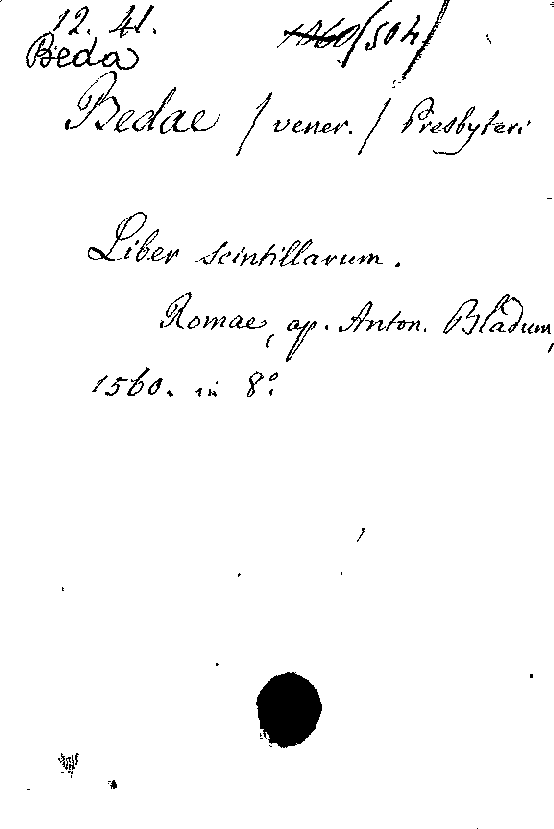 12. 41.
Beda
Bedae / vener. / Presbyteri
Liber scintillarum.
Romae, ap. Anton. Bladum,
1560. in 8°.